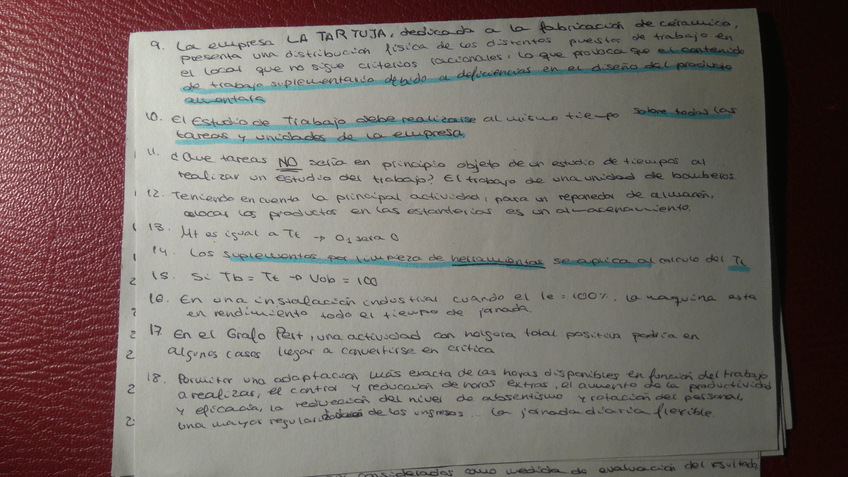 9. La empresa LA TARTUJA, dedicada a la fabricación de cerámica,
presenta una distribución física de los distintos puestos de trabajo en
el local que no sigue criterios racionales, lo que provoca que el contenido
de trabajo suplementario debido a deficiencias en el diseño del producto
aumentará
10. El Estudio de Trabajo debe realizarse al mismo tiempo sobre todas las
tareas y unidades de la empresa
11. ¿Que tareas NO sería en principio objeto de un estudio de tiempos al
realizar un estudio del trabajo? El trabajo de una unidad de bomberos
12. Teniendo en cuenta la principal actividad, para un reponedor de almacén,
colocar los productos en las estanterias es un almacenamiento.
13. Mt es igual a Tt → 0, será 0
14. Los suplementos por limpieza de herramientas se aplica al calculo del Tt
15. Si Tb = Tt → Vob = 100
16. En una instalación industrial cuando el Ie = 100%. la maquina esta
en rendimiento todo el tiempo de jornada
17. En el Grafo Pert, una actividad con holgura total positiva podria en
algunos casos llegar a convertirse en crítica
18. Permitir una adaptación más exacta de las horas disponibles en función del trabajo
a realizar, el control y reducción de horas extras, el aumento de la productividad
y eficacia, la reducción del nivel de absentismo y rotación del personal,
una mayor regular de los ingresos... La jornada diaria flexible.
considerados como medida de evaluación del resultado